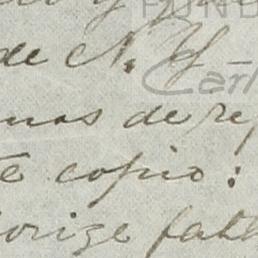 FUND
de N. Y
Carl
mos de re
te copio:
orize fath